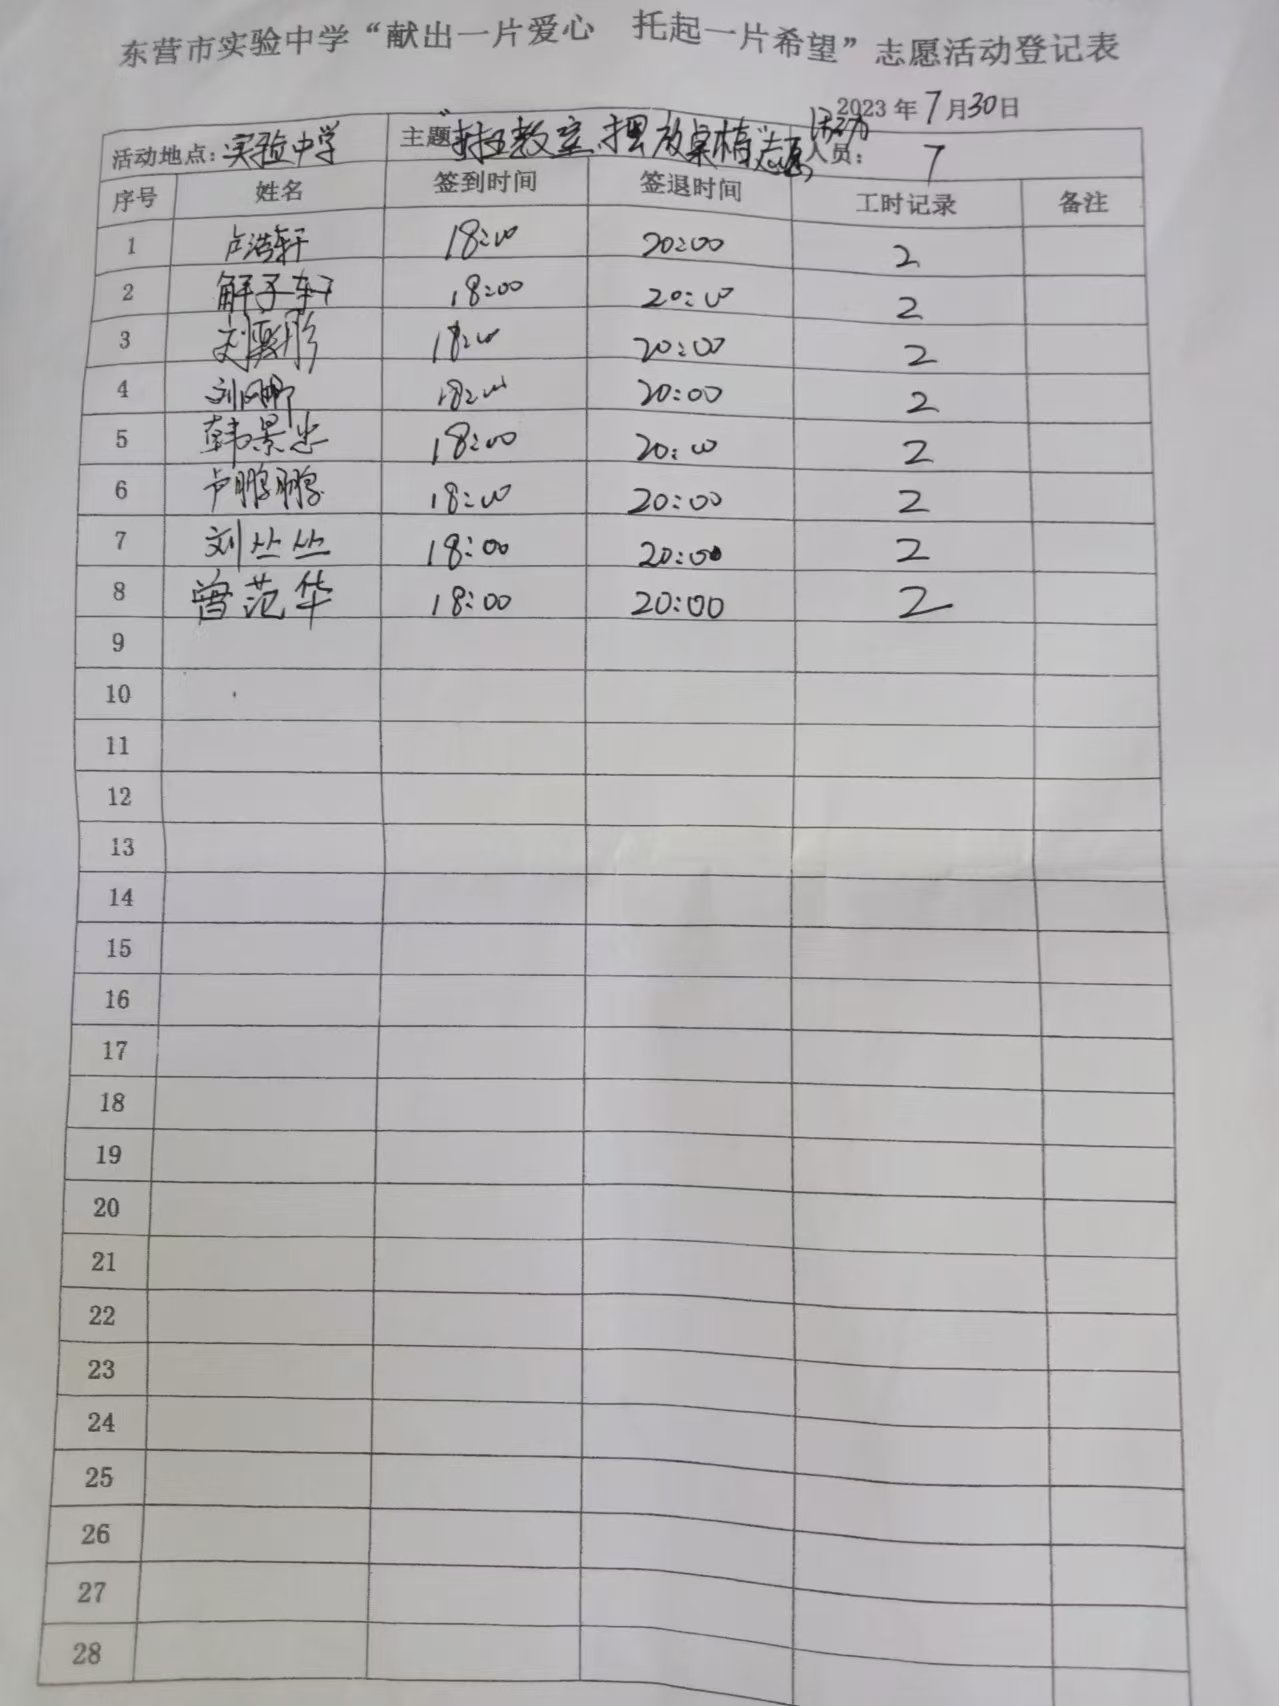 东营市实验中学“献出一片爱心 托起一片希望”志愿活动登记表
2023年7月30日
活动地点：实验中学 主题“打扫教室、摆放桌椅”志愿活动 人员：7
序号 姓名 签到时间 签退时间 工时记录 备注
1 卢浩轩 18:00 20:00 2
2 解子轩 18:00 20:00 2
3 刘 彤 18:00 20:00 2
4 刘 18:00 20:00 2
5 韩景忠 18:00 20:00 2
6 卢鹏鹏 18:00 20:00 2
7 刘丛丛 18:00 20:00 2
8 曾范华 18:00 20:00 2
9
10
11
12
13
14
15
16
17
18
19
20
21
22
23
24
25
26
27
28